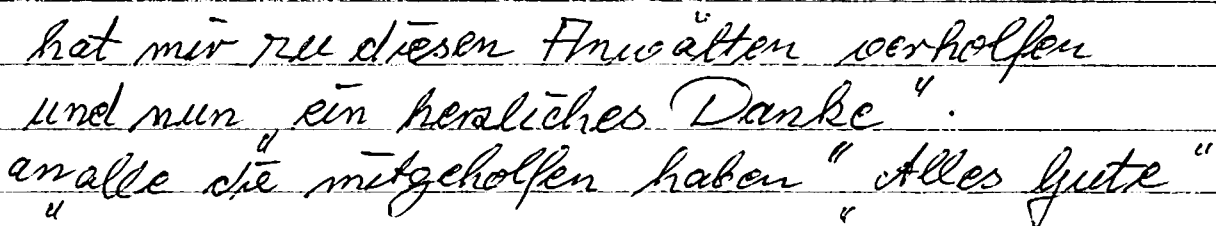 hat mir zu diesen Anwälten verholfen
und nun „ein herzliches Danke“.
„an alle die mitgeholfen haben“ „Alles Gute“